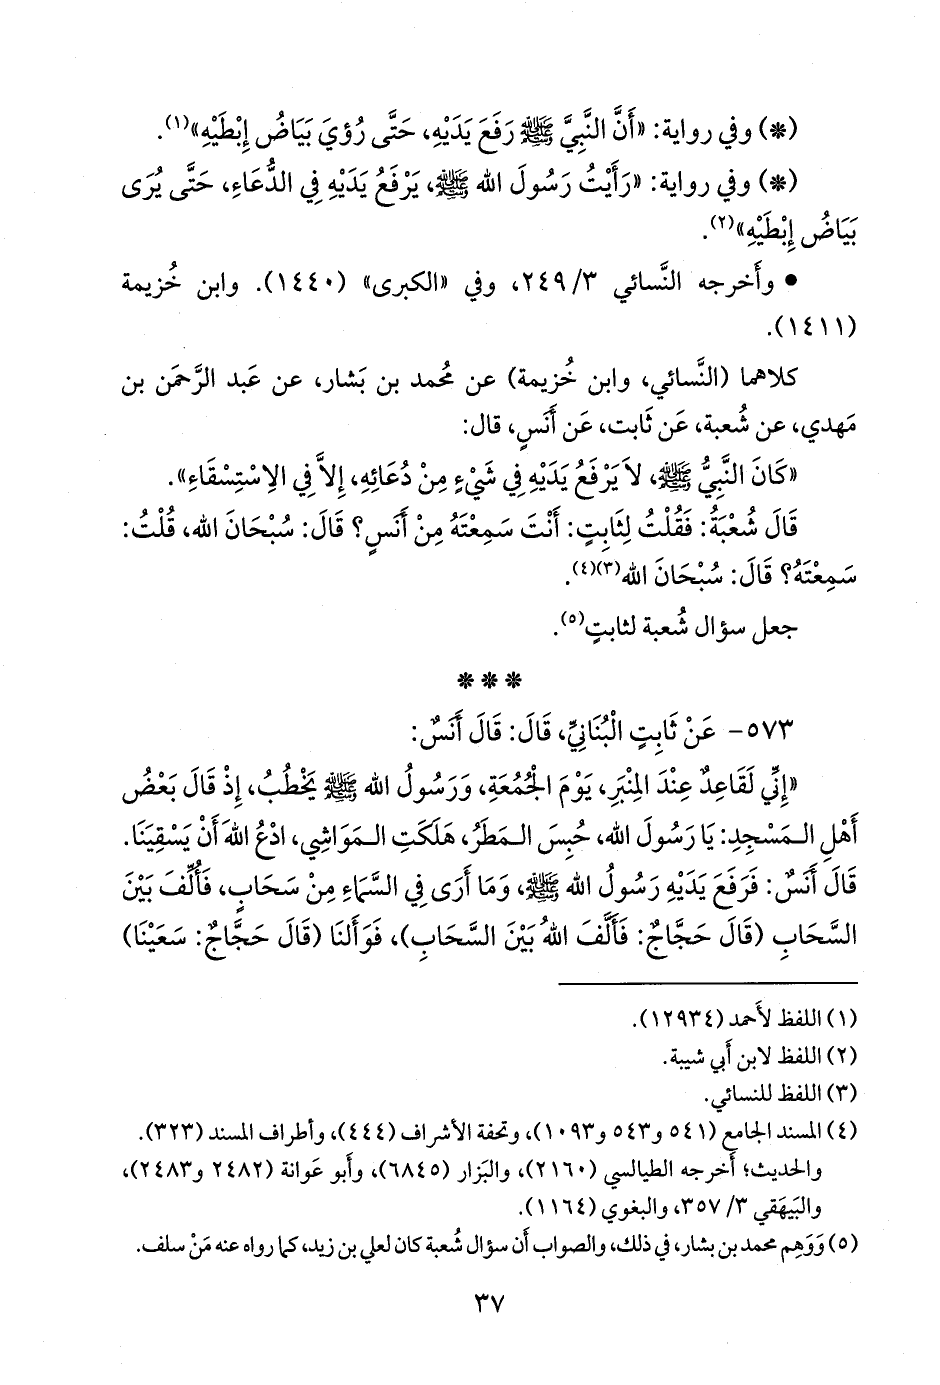 (*) وفي رواية: «أَنَّ النَّبِيَّ ﷺ رَفَعَ يَدَيْهِ، حَتَّى رُؤِيَ بَيَاضُ إِبْطَيْهِ»(١).
(*) وفي رواية: «رَأَيْتُ رَسُولَ الله ﷺ، يَرْفَعُ يَدَيْهِ فِي الدُّعَاءِ، حَتَّى يُرَى
بَيَاضُ إِبْطَيْهِ»(٢).
• وأَخرجه النَّسائي ٣/ ٢٤٩، وفي «الكبرى» (١٤٤٠). وابن خُزيمة
(١٤١١).
كلاهما (النَّسائي، وابن خُزيمة) عن مُحمد بن بَشار، عن عَبد الرَّحمَن بن
مَهدي، عن شُعبة، عَن ثَابت، عَن أَنَسٍ، قال:
«كَانَ النَّبِيُّ ﷺ، لاَ يَرْفَعُ يَدَيْهِ فِي شَيْءٍ مِنْ دُعَائِهِ، إِلاَّ فِي الاِسْتِسْقَاءِ».
قَالَ شُعْبَةُ: فَقُلْتُ لِثَابِتٍ: أَنْتَ سَمِعْتَهُ مِنْ أَنَسٍ؟ قَالَ: سُبْحَانَ الله، قُلْتُ:
سَمِعْتَهُ؟ قَالَ: سُبْحَانَ الله(٣)(٤).
جعل سؤال شُعبة لثابتٍ(٥).
* * *
٥٧٣- عَنْ ثَابِتٍ الْبُنَانِيِّ، قَالَ: قَالَ أَنَسٌ:
«إِنِّي لَقَاعِدٌ عِنْدَ المِنْبَرِ، يَوْمَ الجُمُعَةِ، وَرَسُولُ الله ﷺ يَخْطُبُ، إِذْ قَالَ بَعْضُ
أَهْلِ الـمَسْجِدِ: يَا رَسُولَ الله، حُبِسَ الـمَطَرُ، هَلَكَتِ الـمَوَاشِي، ادْعُ اللهَ أَنْ يَسْقِيَنَا.
قَالَ أَنَسٌ: فَرَفَعَ يَدَيْهِ رَسُولُ الله ﷺ، وَمَا أَرَى فِي السَّمَاءِ مِنْ سَحَابٍ، فَأُلِّفَ بَيْنَ
السَّحَابِ (قَالَ حَجَّاجٌ: فَأَلَّفَ اللهُ بَيْنَ السَّحَابِ)، فَوَأَلنَا (قَالَ حَجَّاجٌ: سَعَيْنَا)
(١) اللفظ لأَحمد (١٢٩٣٤).
(٢) اللفظ لابن أَبي شيبة.
(٣) اللفظ للنسائي.
(٤) المسند الجامع (٥٤١ و٥٤٣ و١٠٩٣)، وتحفة الأشراف (٤٤٤)، وأطراف المسند (٣٢٣).
والحديث؛ أَخرجه الطيالسي (٢١٦٠)، والبَزار (٦٨٤٥)، وأَبو عَوانة (٢٤٨٢ و٢٤٨٣)،
والبَيهَقي ٣/ ٣٥٧، والبغوي (١١٦٤).
(٥) وَوَهِم محمد بن بشار، في ذلك، والصواب أَن سؤال شُعبة كان لعلي بن زيد، كما رواه عنه مَنْ سلف.
٣٧